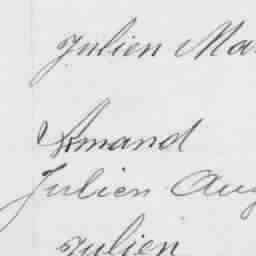 Julien Ma
Armand
Julien Aug
Julien